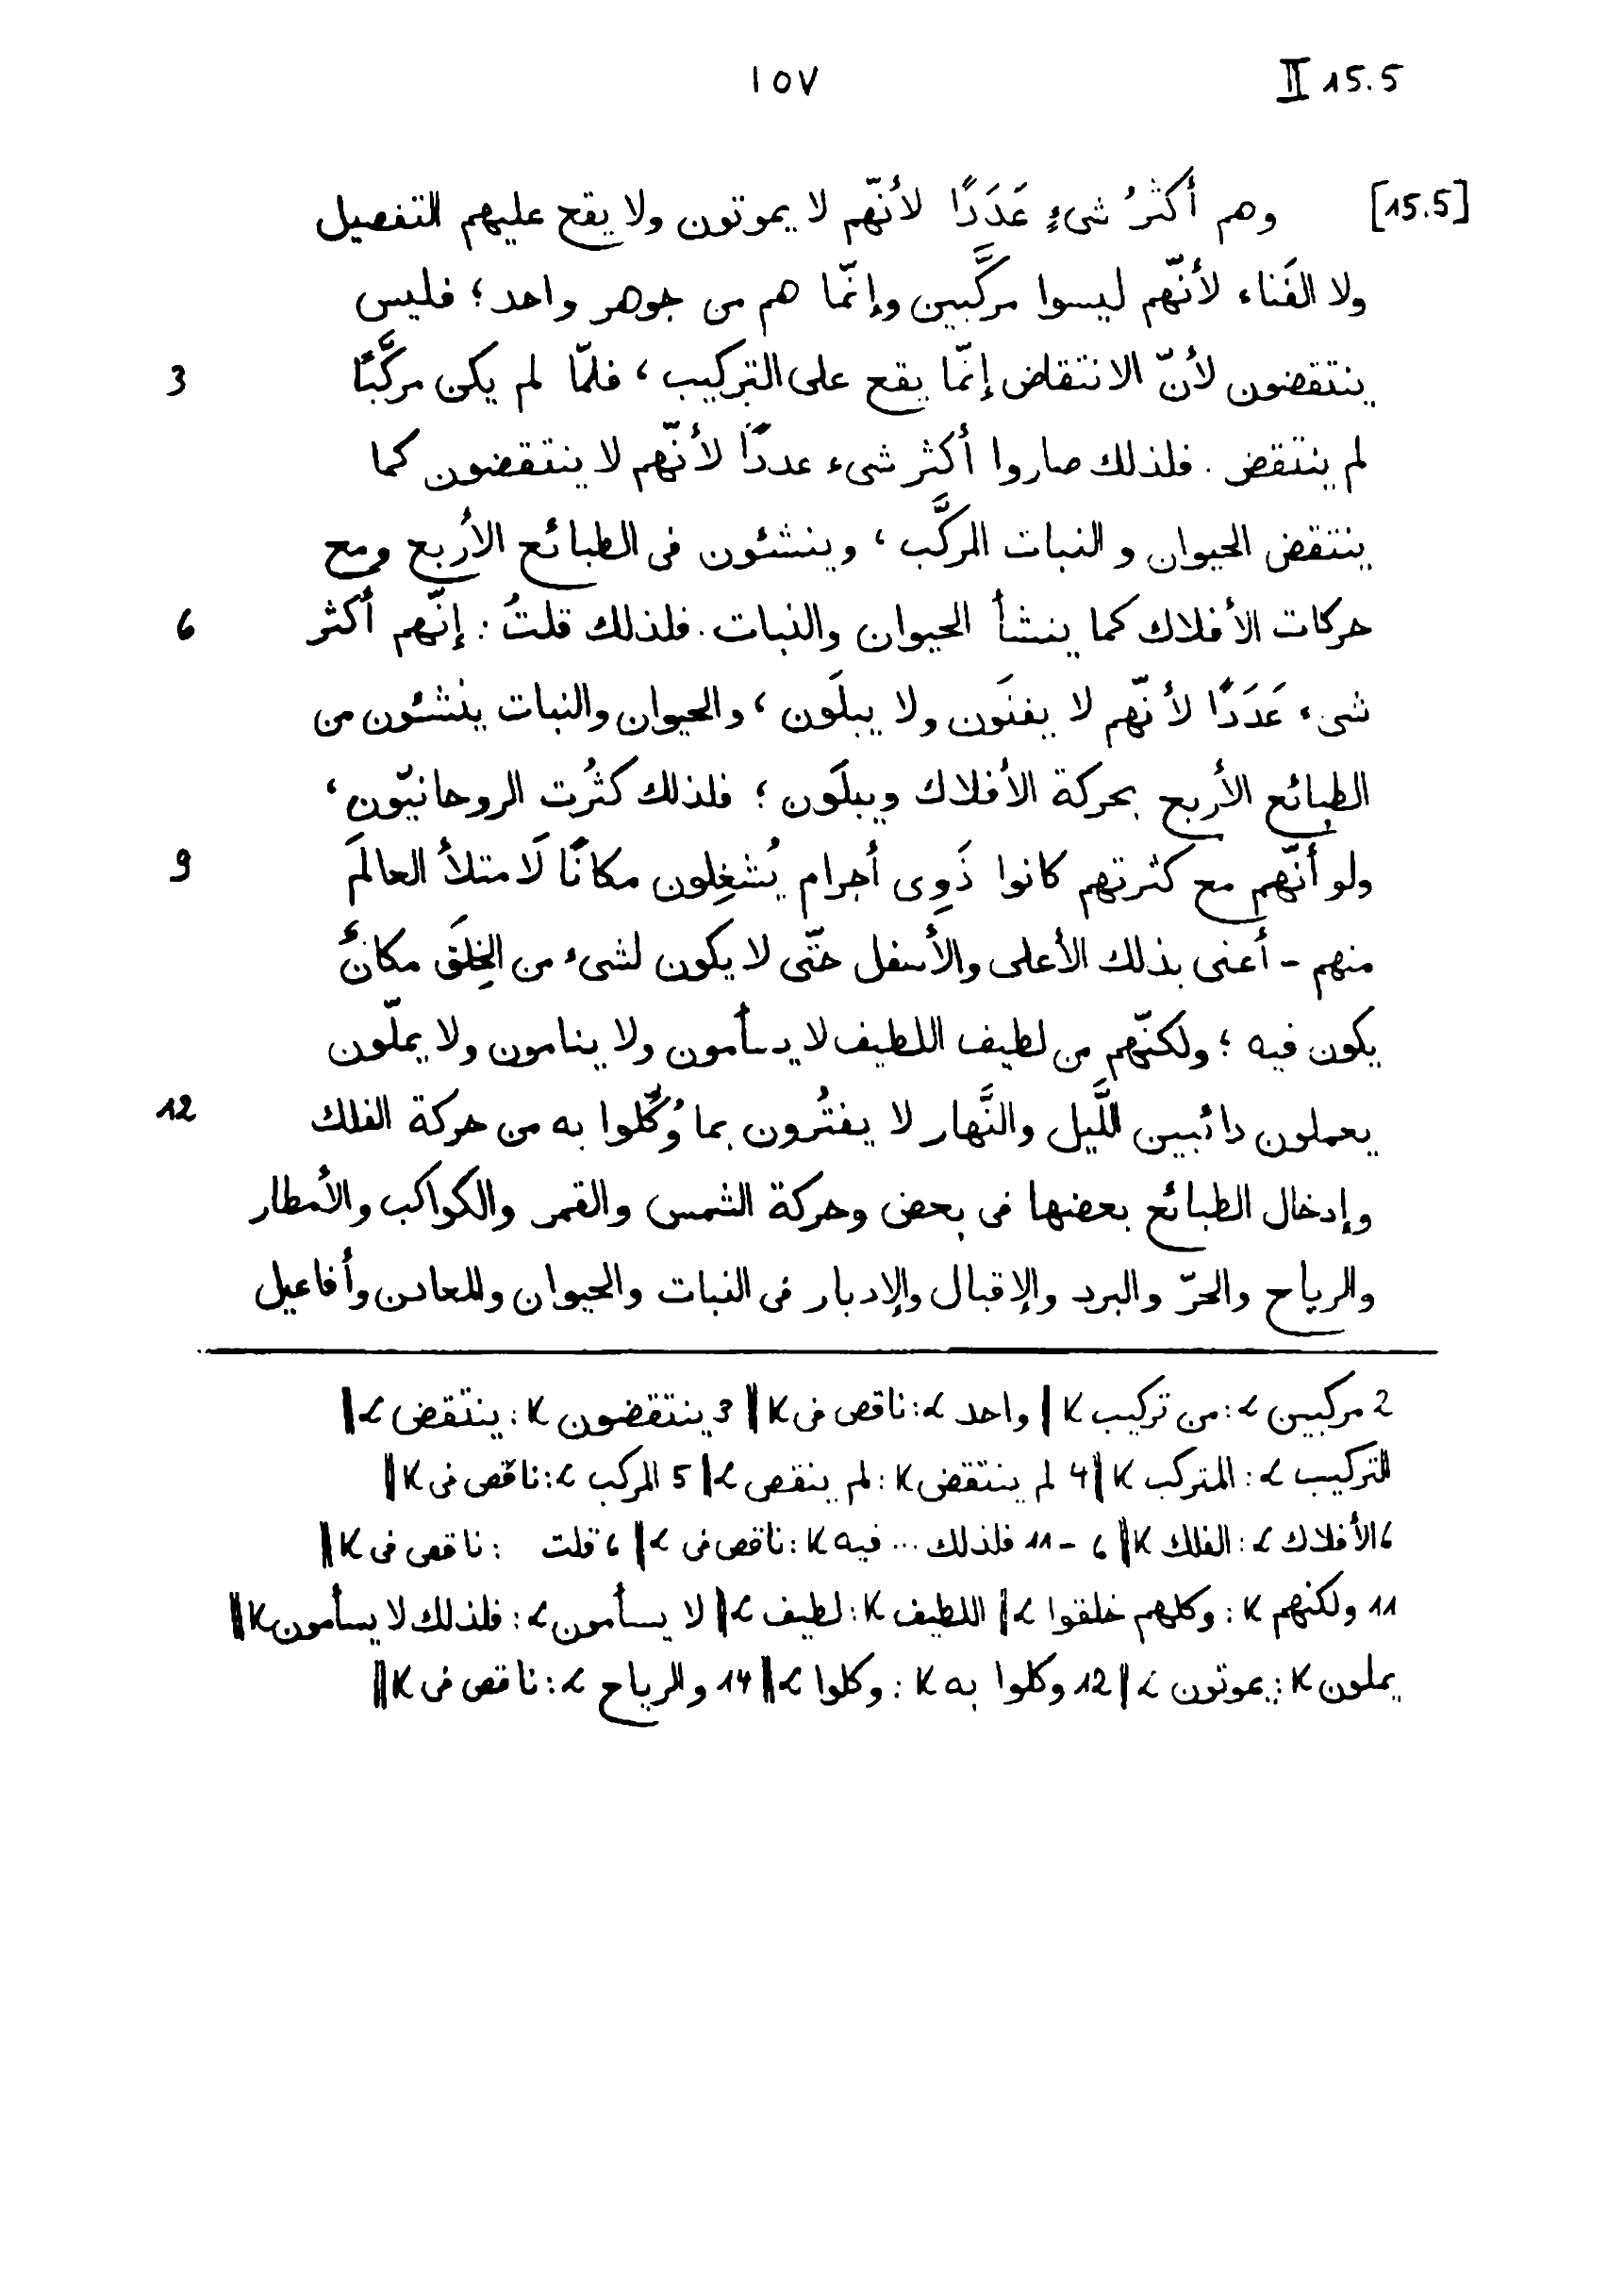 ١٥٧ II 15.5
[15.5] وهم أكثرُ شىءٍ عَدَدًا لأنّهم لا يموتون ولا يقع عليهم التفصيل
ولا الفَناء لأنّهم ليسوا مركَّبين وإنّما هم من جوهر واحد؛ فليس
3 ينتقضون لأنّ الانتقاض إنّما يقع على التركيب، فلمّا لم يكن مركَّبًا
لم ينتقض. فلذلك صاروا أكثر شىء عددًا لأنّهم لا ينتقضون كما
ينتقض الحيوان والنبات المركَّب، وينشئون فى الطبائع الأربع ومع
6 حركات الأفلاك كما ينشأ الحيوان والنبات. فلذلك قلتُ: إنّهم أكثر
شىء عَدَدًا لأنّهم لا يفنَون ولا يبلَون، والحيوان والنبات ينشئون من
الطبائع الأربع بحركة الأفلاك ويبلَون؛ فلذلك كثُرت الروحانيّون،
9 ولو أنّهم مع كثرتهم كانوا ذَوِى أجرام يُشغِلون مكانًا لَامتلأ العالَم
منهم - أعنى بذلك الأعلى والأسفل حتّى لا يكون لشىء من الخِلَق مكانٌ
يكون فيه؛ ولكنّهم من لطيف اللطيف لا يسأمون ولا ينامون ولا يملّون
12 يعملون دائبين اللَّيل والنَّهار لا يفتُرون بما وُكِّلوا به من حركة الفلك
وإدخال الطبائع بعضها فى بعض وحركة الشمس والقمر والكواكب والأمطار
والرياح والحرّ والبرد والإقبال والإدبار فى النبات والحيوان والمعادن وأفاعيل
2 مركبين L: من تركيب K | واحد L: ناقص فى K || 3 ينتقضون K: ينتقض L ||
التركيب L: المتركب K || 4 لم ينتقض K: لم ينقص L || 5 المركب L: ناقص فى K ||
6 الأفلاك L: الفلك K || 6 - 11 فلذلك ... فيه K: ناقص فى L || 6 قلت : ناقص فى K ||
11 ولكنهم K: وكلهم خلقوا L | اللطيف K: لطيف L || لا يسأمون L: فلذلك لا يسأمون K ||
يملون K: يموتون L || 12 وكلوا به K: وكلوا L || 14 والرياح L: ناقص فى K ||